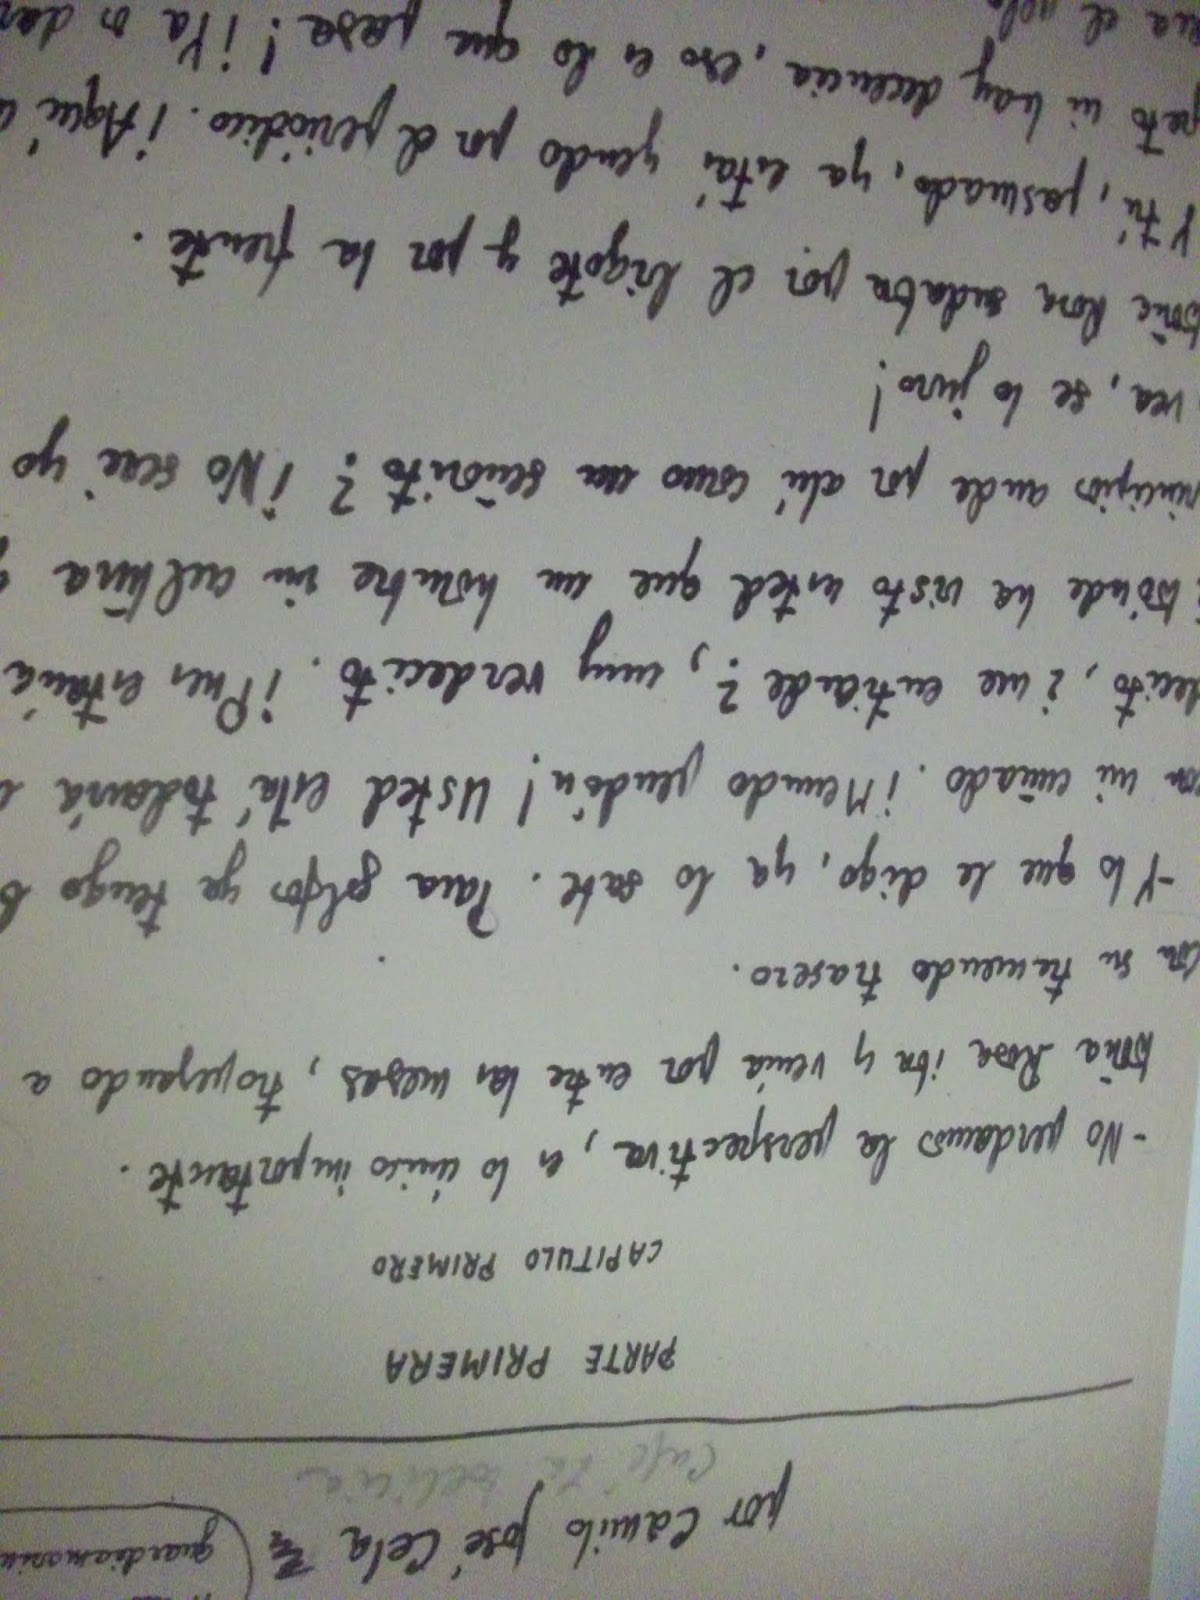 guardiamarin
por Camilo José Cela
Café La Delicia
PARTE PRIMERA
CAPITULO PRIMERO
-No perdamos la perspectiva, es lo único importante.
Doña Rosa iba y venía por entre las mesas, tropezando a
con su tremendo trasero.
-Y lo que le digo, ya lo sabe. Para golfos ya tengo b
con mi cuñado. ¡Menudo pendón! Usted está todavía
decito, ¿me entiende?, muy verdecito. ¡Pues estaría
¿Dónde ha visto usted que un hombre sin cultura
principios ande por ahí como un señorito? ¡No seré yo
vea, se lo juro!
Doña Rosa sudaba por el bigote y por la frente.
Y tú, pasmado, ya estás yendo por el periódico. ¡Aquí
peto ni hay decencia, eso es lo que pasa! ¡Ya os dar